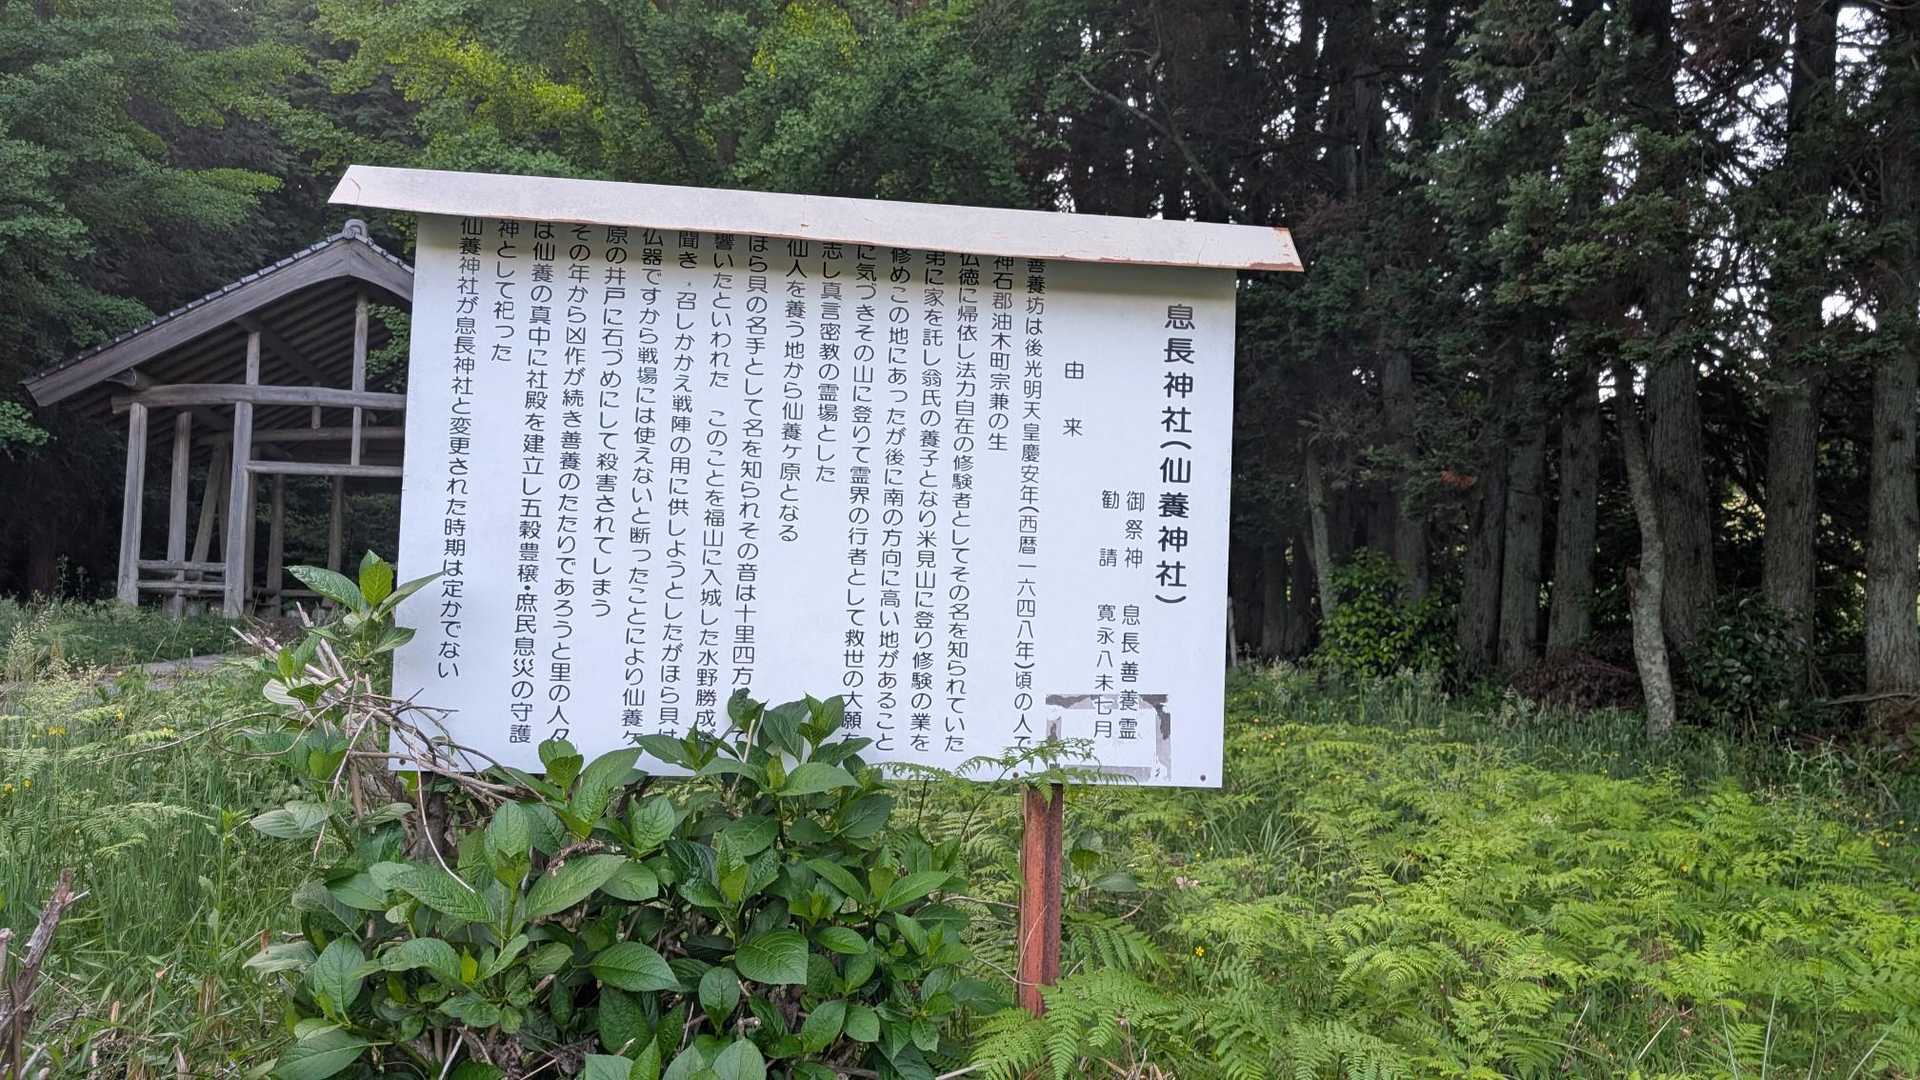 息長神社(仙養神社)
御祭神 息長善養霊
勧請 寛永八未七月
由来
善養坊は後光明天皇慶安年(西暦一六四八年)頃の人で
神石郡油木町宗兼の生
仏徳に帰依し法力自在の修験者としてその名を知られていた
弟に家を託し翁氏の養子となり米見山に登り修験の業を
修めこの地にあったが後に南の方向に高い地があること
に気づきその山に登りて霊界の行者として救世の大願を
志し真言密教の霊場とした
仙人を養う地から仙養ケ原となる
ほら貝の名手として名を知られその音は十里四方
響いたといわれた このことを福山に入城した水野勝成
聞き,召しかかえ戦陣の用に供しようとしたがほら貝は
仏器ですから戦場には使えないと断ったことにより仙養ケ
原の井戸に石づめにして殺害されてしまう
その年から凶作が続き善養のたたりであろうと里の人々
は仙養の真中に社殿を建立し五穀豊穣・庶民息災の守護
神として祀った
仙養神社が息長神社と変更された時期は定かでない